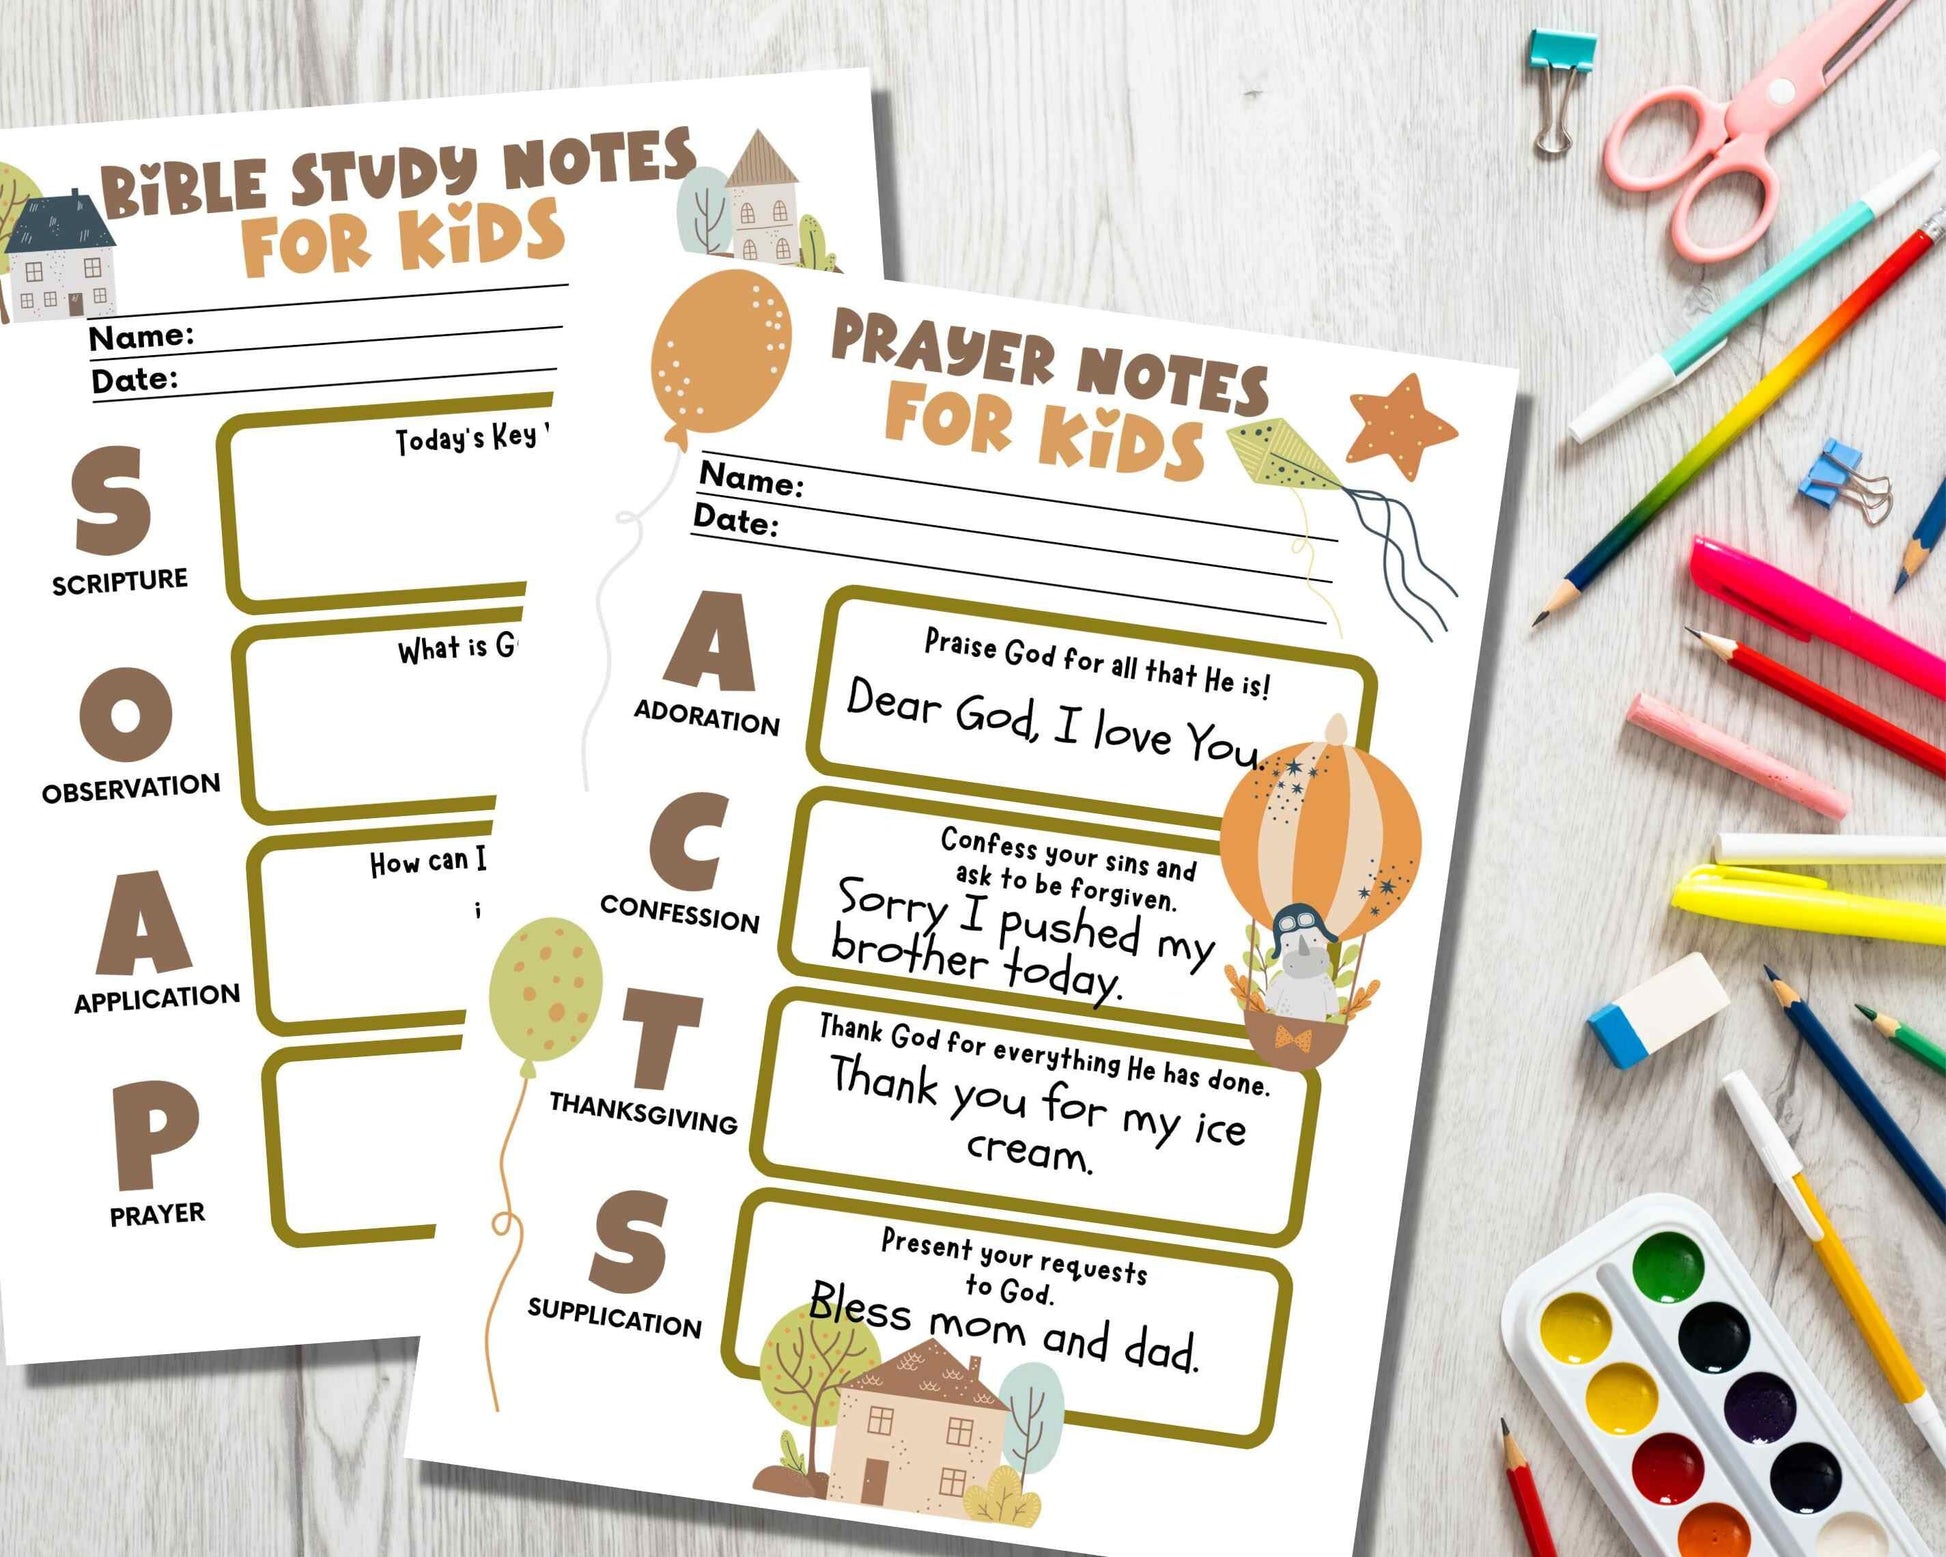 BIBLE STUDY NOTES
FOR KIDS
Name:
Date:
S
SCRIPTURE
Today's Key
O
OBSERVATION
What is
A
APPLICATION
How can I
P
PRAYER
PRAYER NOTES
FOR KIDS
Name:
Date:
A
ADORATION
Praise God for all that He is!
Dear God, I love You.
C
CONFESSION
Confess your sins and
ask to be forgiven.
Sorry I pushed my
brother today.
T
THANKSGIVING
Thank God for everything He has done.
Thank you for my ice
cream.
S
SUPPLICATION
Present your requests
to God.
Bless mom and dad.